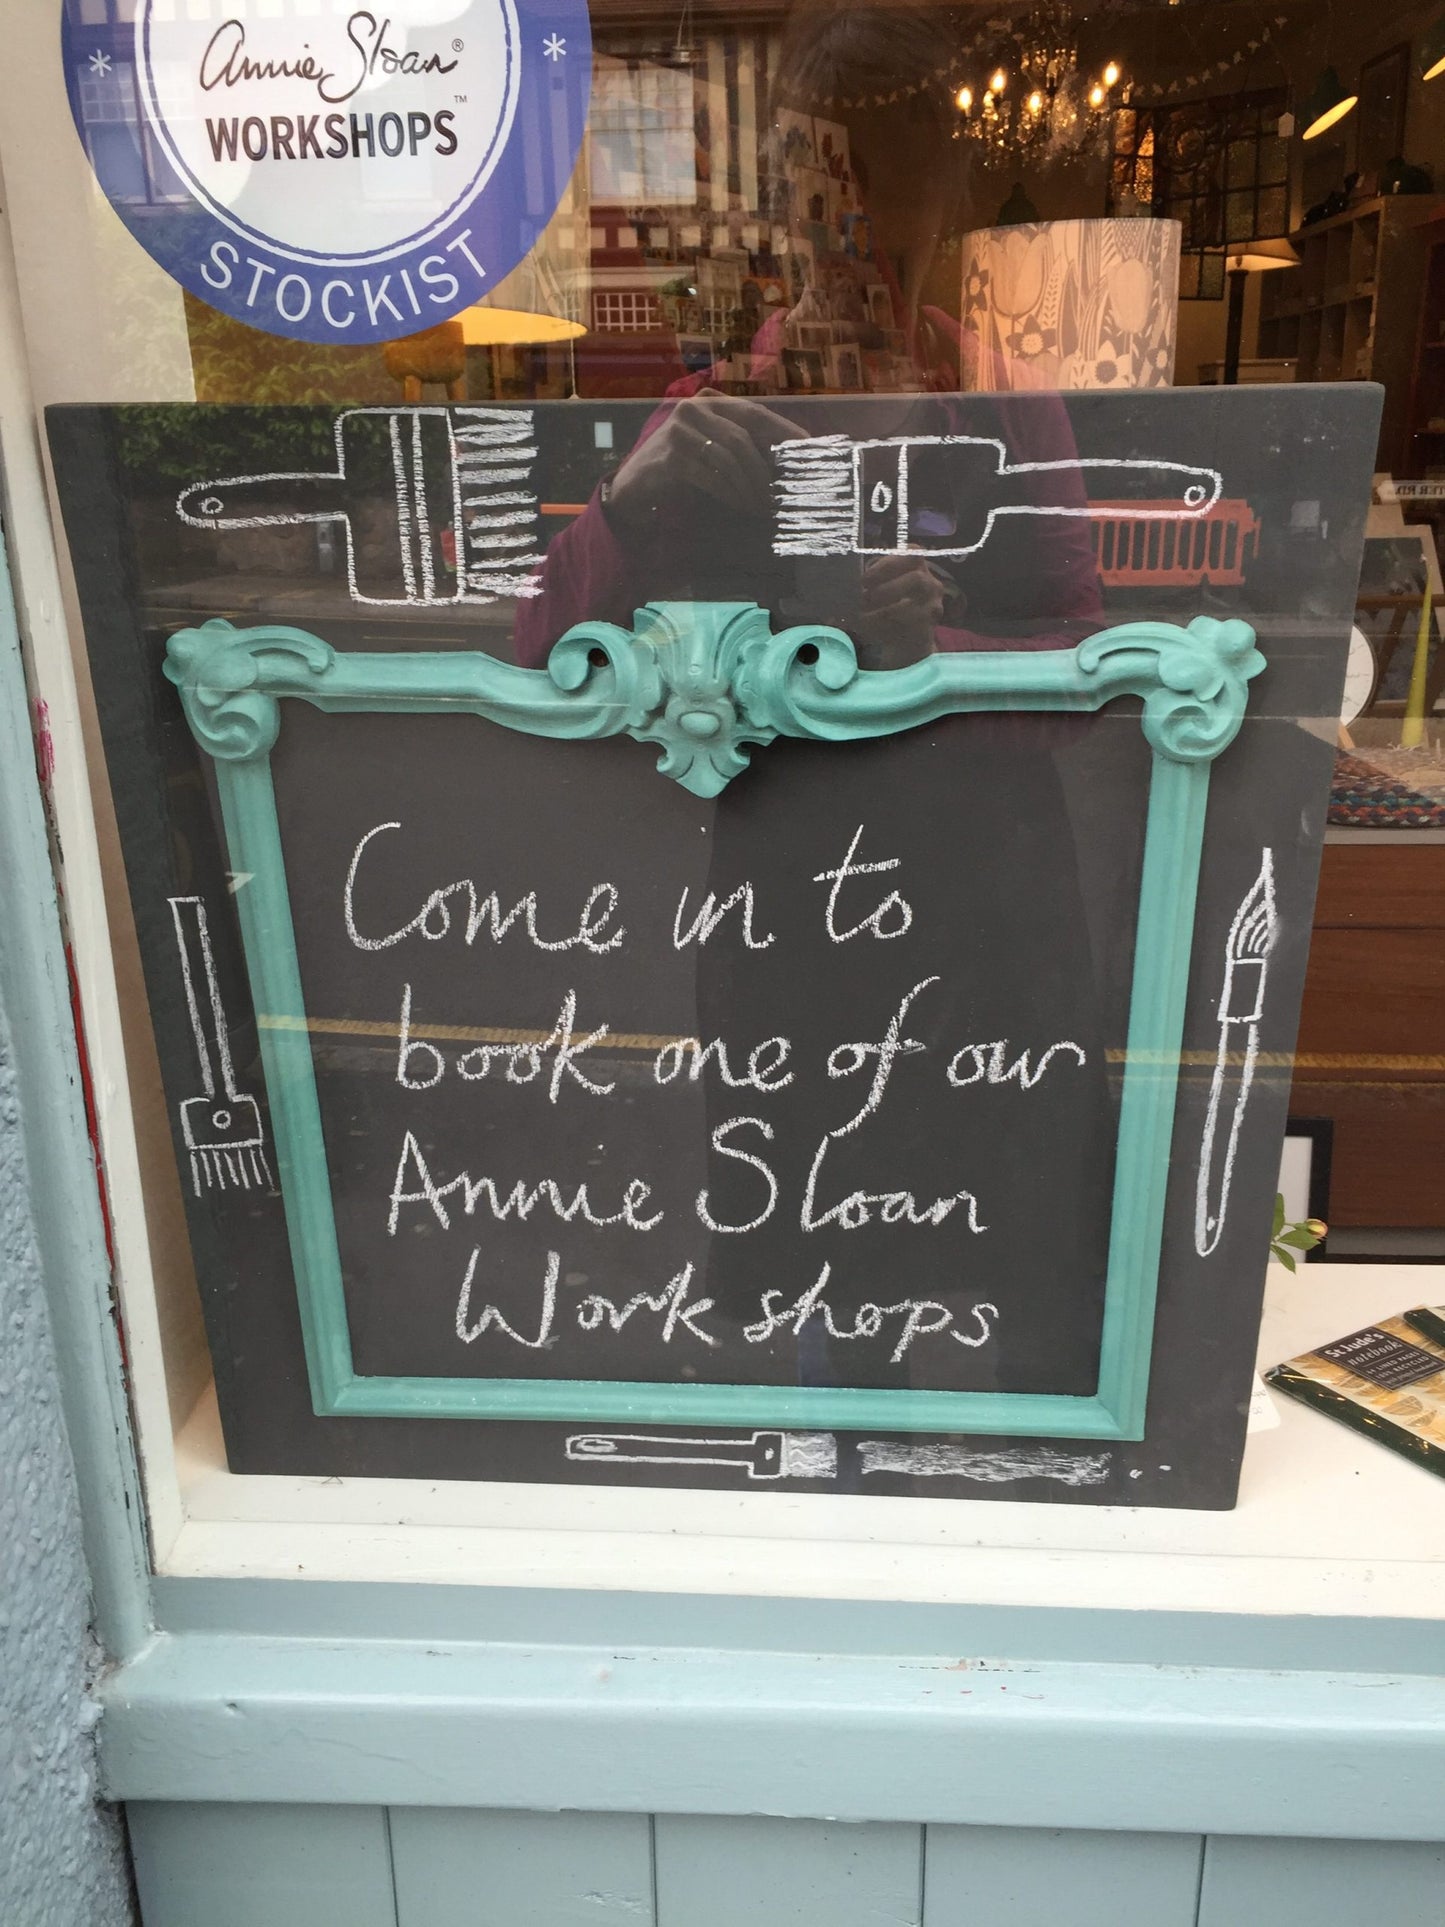 Annie Sloan®
WORKSHOPS™
* STOCKIST *
Come in to
book one of our
Annie Sloan
Workshops
St Jude's
notebook